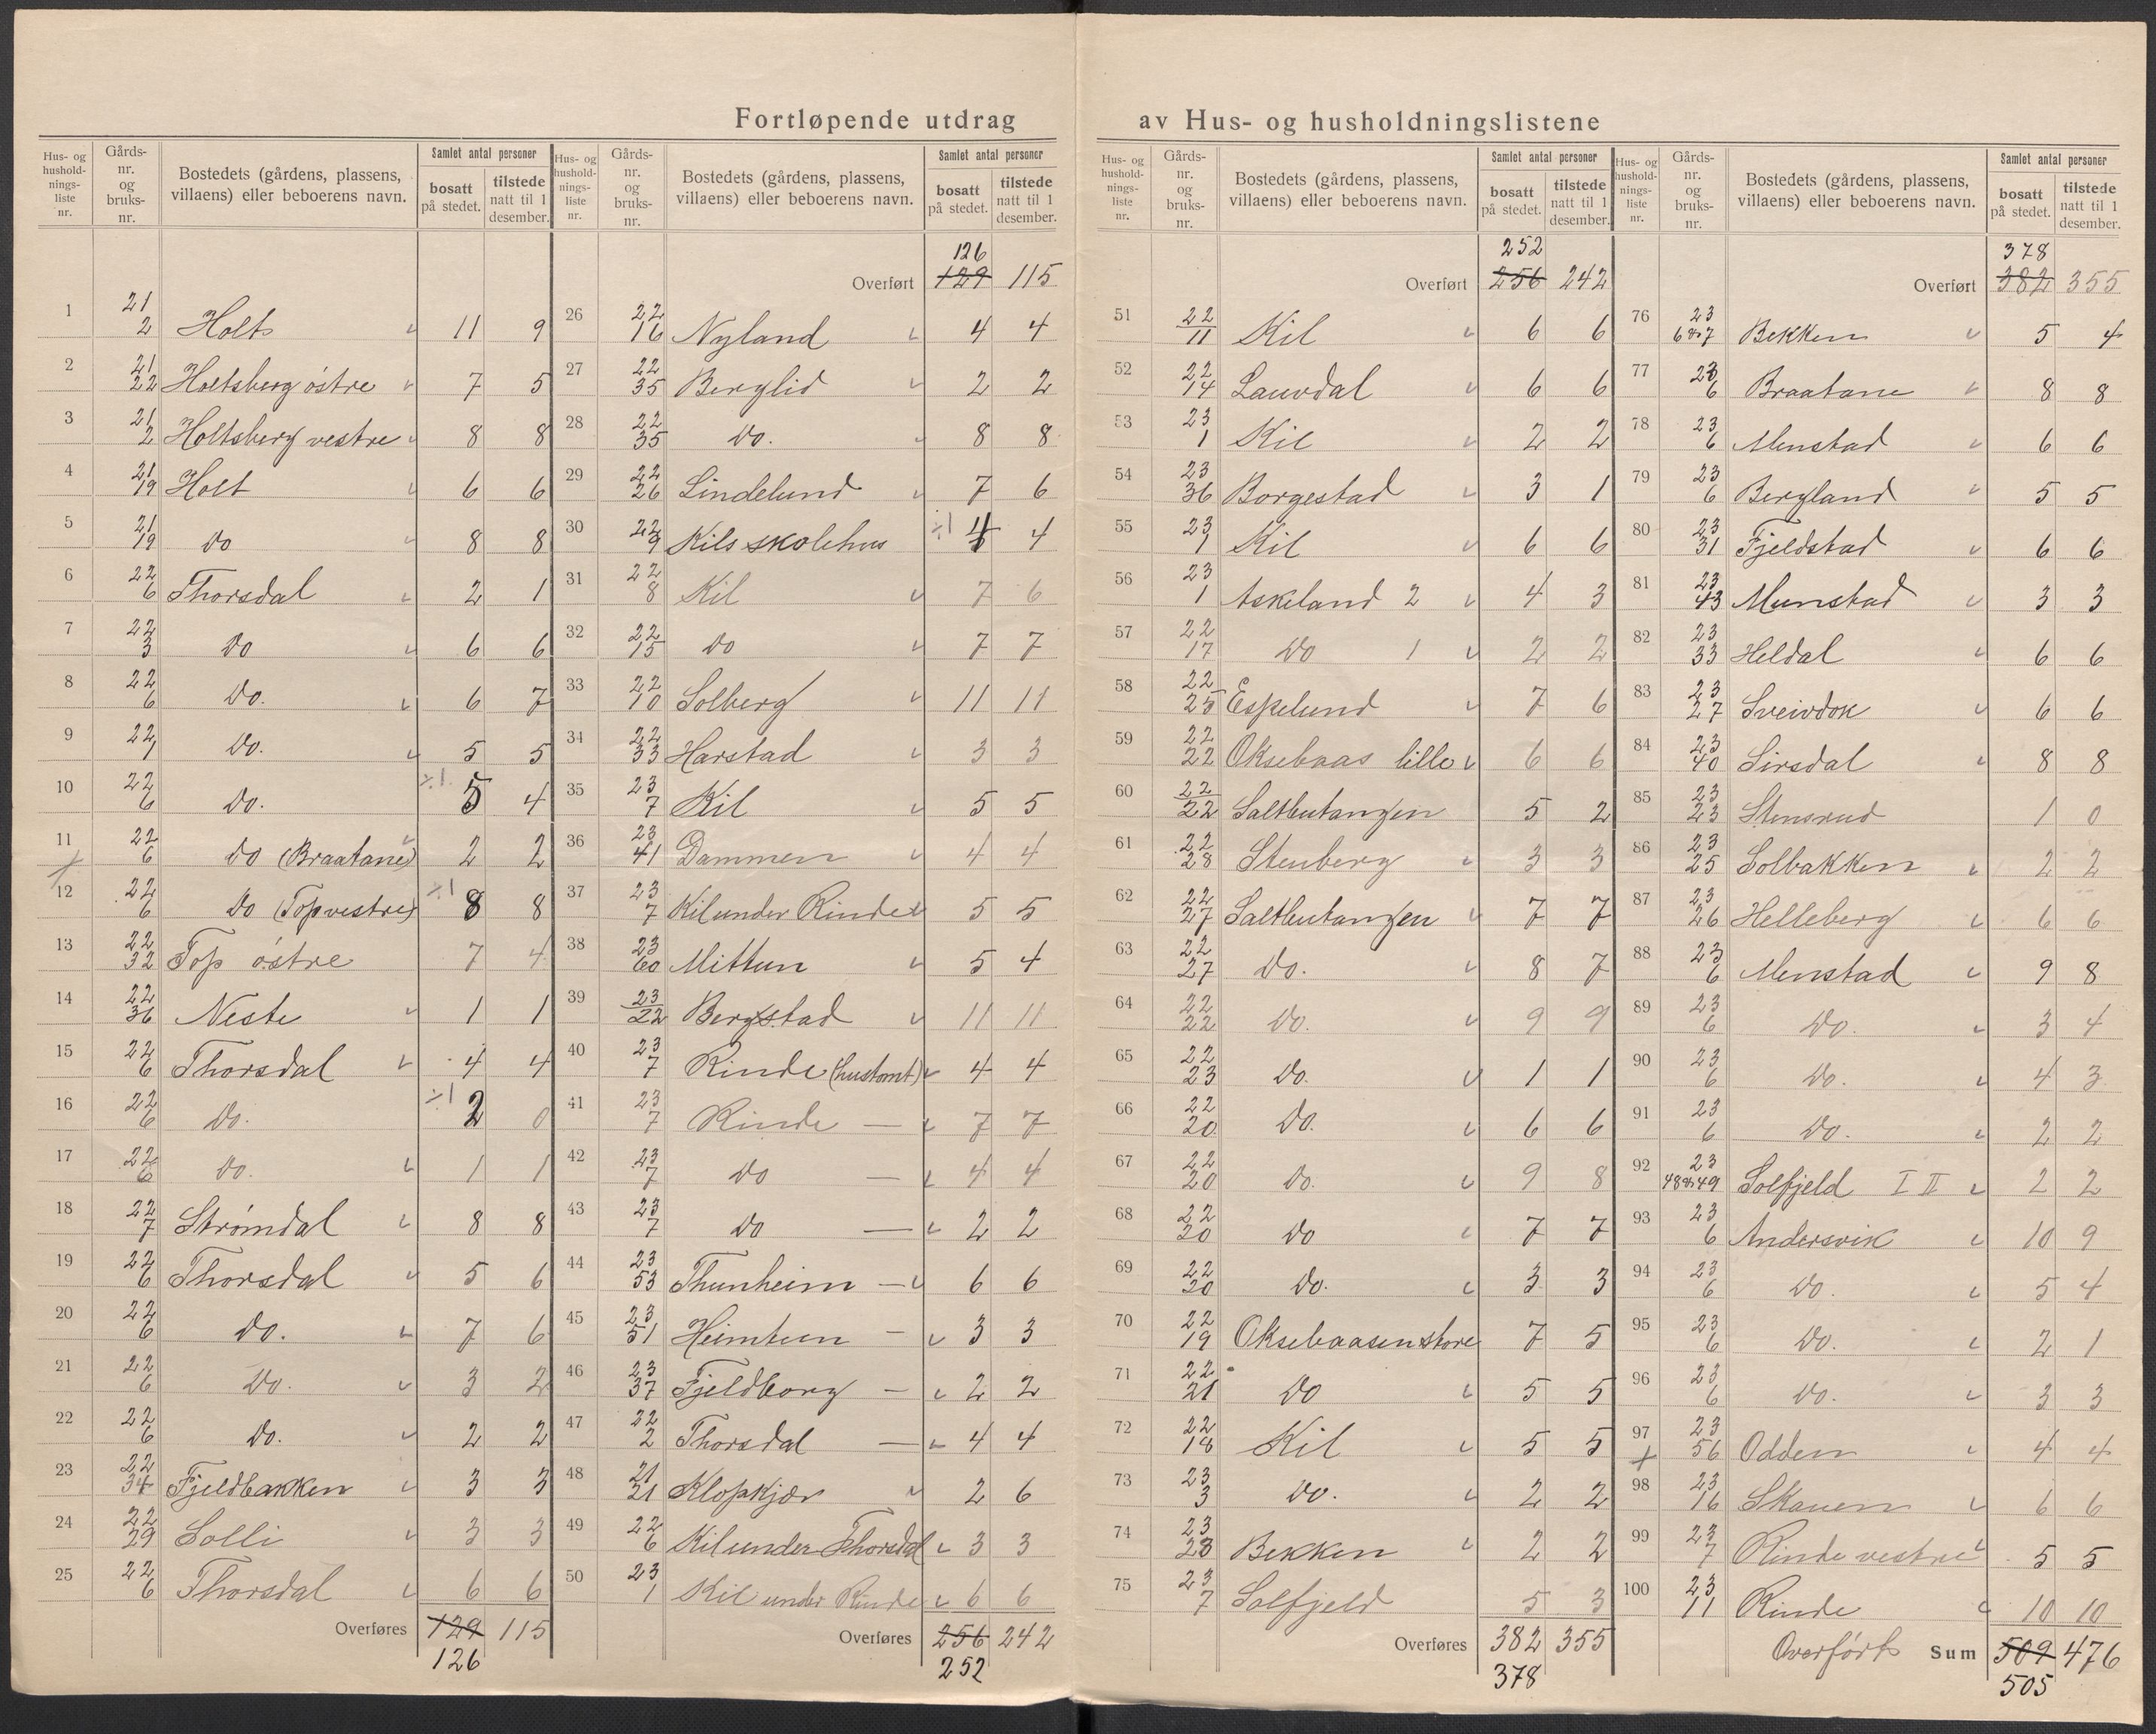 Fortløpende utdrag av Hus- og husholdningslistene
Hus- og husholdnings-liste nr. | Gårds-nr. og bruks-nr. | Bostedets (gårdens, plassens, villaens) eller beboerens navn. | Samlet antal personer | bosatt på stedet. | tilstede natt til 1 desember.
1 21/2 Holt 11 9
2 21/22 Holtsberg østre 7 5
3 21/2 Holtsberg vestre 8 8
4 21/19 Holt 6 6
5 21/19 do 8 8
6 22/6 Thorsdal 2 1
7 22/3 Do 6 6
8 22/6 Do. 6 7
9 22/1 Do. 5 5
10 22/6 Do. ÷1 5 4
11 22/6 do (Braatane) 2 2
12 22/6 Do (Top vestre) ÷1 8 8
13 22/32 Top østre 7 4
14 22/36 Neste 1 1
15 22/6 Thorsdal 4 4
16 22/6 Do. ÷1 2 0
17 22/6 Do. 1 1
18 22/7 Strømdal 8 8
19 22/6 Thorsdal 5 6
20 22/6 Do. 7 6
21 22/6 Do. 3 2
22 22/6 Do. 2 2
23 22/34 Fjeldbakken 3 3
24 22/29 Solli 3 3
25 22/6 Thorsdal 6 6
Overføres 129 115
126
Hus- og husholdnings-liste nr. | Gårds-nr. og bruks-nr. | Bostedets (gårdens, plassens, villaens) eller beboerens navn. | Samlet antal personer | bosatt på stedet. | tilstede natt til 1 desember.
126
Overført 129 115
26 22/16 Nyland 4 4
27 22/35 Berglid 2 2
28 22/35 Do. 8 8
29 22/26 Lindelund 7 6
30 22/9 Kils skolehus ÷1 4 4
31 22/8 Kil 7 6
32 22/15 Do 7 7
33 22/10 Solberg 11 11
34 22/33 Harstad 3 3
35 23/7 Kil 5 5
36 23/41 Dammen 4 4
37 23/7 Kil under Rinde 5 5
38 23/60 Mittun 5 4
39 23/22 Bergstad 11 11
40 23/7 Rinde (hustomt) 4 4
41 23/7 Rinde 7 7
42 23/7 Do 4 4
43 23/7 Do 2 2
44 23/53 Thunheim 6 6
45 23/51 Heimtun 3 3
46 23/37 Fjeldborg 2 2
47 22/2 Thorsdal 4 4
48 21/21 Klopkjær 2 6
49 22/6 Kil under Thorsdal 3 3
50 23/1 Kil under Rinde 6 6
Overføres 256 242
252
Hus- og husholdnings-liste nr. | Gårds-nr. og bruks-nr. | Bostedets (gårdens, plassens, villaens) eller beboerens navn. | Samlet antal personer | bosatt på stedet. | tilstede natt til 1 desember.
252
Overført 256 242
51 22/11 Kil 6 6
52 22/14 Lauvdal 6 6
53 23/1 Kil 2 2
54 23/36 Borgestad 3 1
55 23/1 Kil 6 6
56 23/1 Askeland 2 4 3
57 22/17 Do 1 2 2
58 22/25 Espelund 7 6
59 22/22 Oksebaas lille 6 6
60 22/22 Saltbutangen 5 2
61 22/28 Stenberg 3 3
62 22/27 Saltbutangen 7 7
63 22/27 Do. 8 7
64 22/22 Do. 9 9
65 22/23 Do. 1 1
66 22/20 Do. 6 6
67 22/20 Do. 9 8
68 22/20 Do 7 7
69 22/20 Do. 3 3
70 22/19 Oksebaasen store 7 5
71 22/21 Do 5 5
72 22/18 Kil 5 5
73 23/3 Do. 2 2
74 23/28 Bekken 2 2
75 23/7 Solfjeld 5 3
Overføres 382 355
378
Hus- og husholdnings-liste nr. | Gårds-nr. og bruks-nr. | Bostedets (gårdens, plassens, villaens) eller beboerens navn. | Samlet antal personer | bosatt på stedet. | tilstede natt til 1 desember.
378
Overført 382 355
76 23/6 & 7 Bekken 5 4
77 23/6 Braatane 8 8
78 23/6 Menstad 6 6
79 23/6 Bergland 5 5
80 23/31 Fjeldstad 6 6
81 23/43 Menstad 3 3
82 23/33 Heldal 6 6
83 23/27 Sveivdok 6 6
84 23/40 Sirsdal 8 8
85 23/23 Stensrud 1 0
86 23/25 Solbakken 2 2
87 23/26 Helleberg 6 6
88 23/6 Menstad 9 8
89 23/6 Do. 3 4
90 23/6 Do. 4 3
91 23/6 Do. 2 2
92 23/48 & 49 Solfjeld I II 2 2
93 23/6 Andersvik 10 9
94 23/6 Do. 5 4
95 23/6 Do. 2 1
96 23/6 Do. 3 3
97 23/56 Odden 4 4
98 23/16 Skauen 6 6
99 23/7 Rinde vestre 5 5
100 23/11 Rinde 10 10
Overført Sum 509 476
505